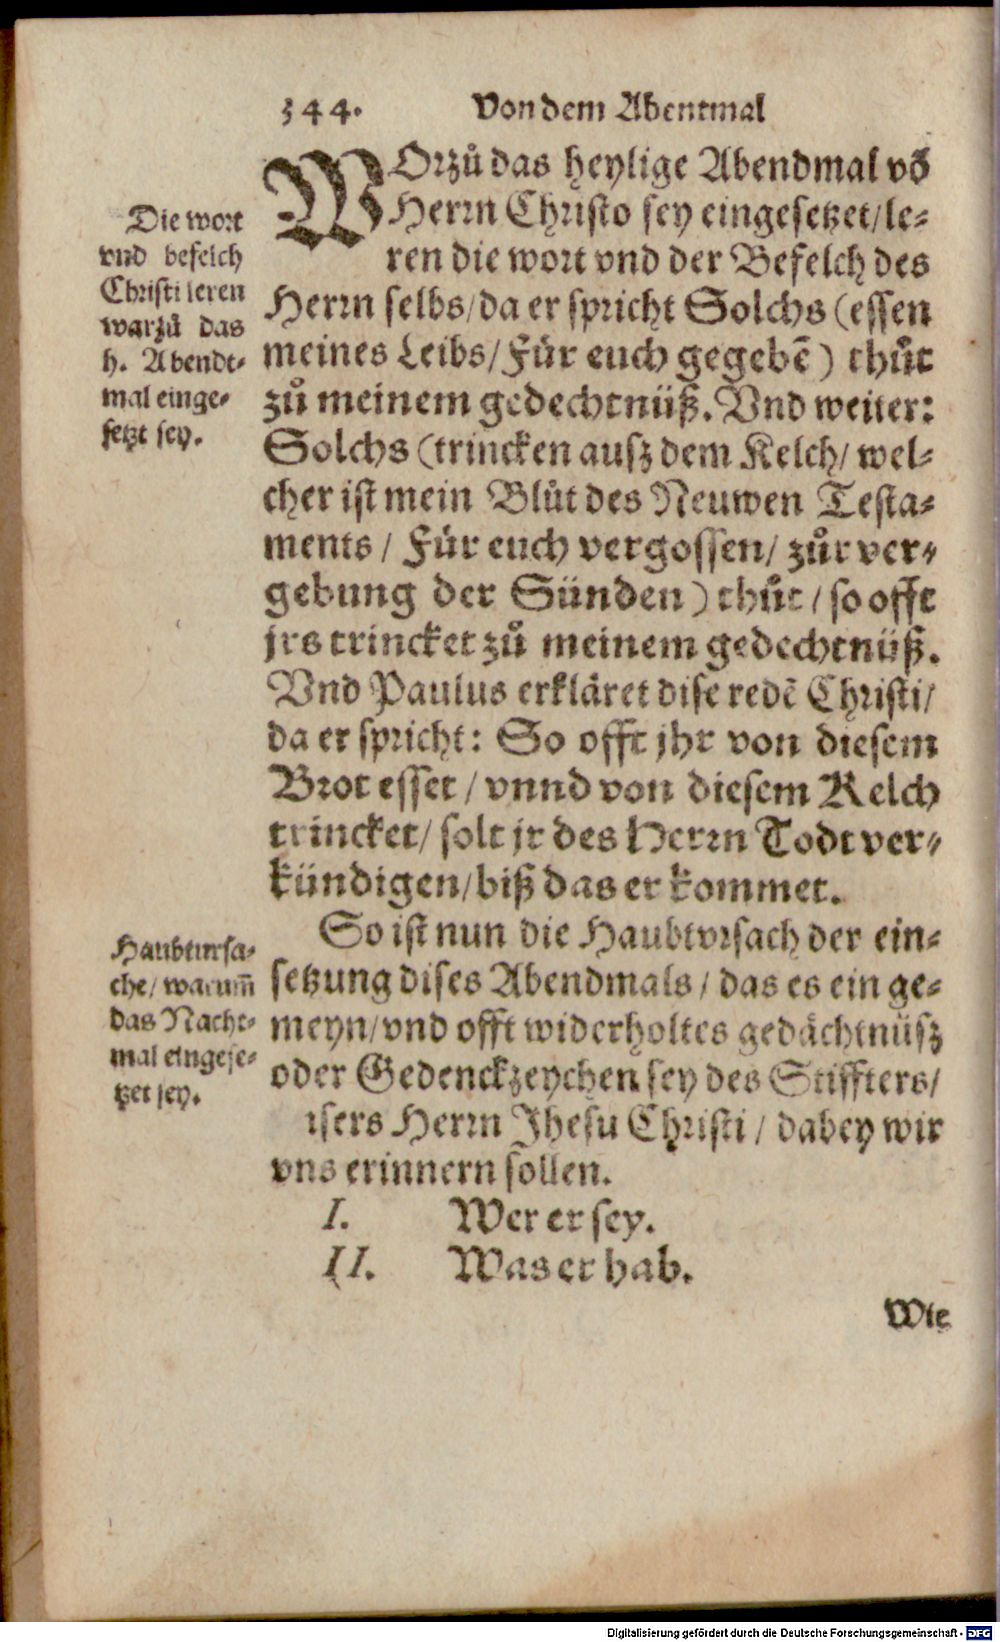 344. Von dem Abentmal
WOrzů das heylige Abendmal võ
Herrn Christo sey eingesetzet/le-
ren die wort vnd der Befelch des
Herrn selbs/da er spricht Solchs (essen
meines Leibs/Für euch gegebē) thůt
zů meinem gedechtnüß. Vnd weiter:
Solchs (trincken ausz dem Kelch/ wel-
cher ist mein Blůt des Neuwen Testa-
ments / Für euch vergossen/ zůr ver-
gebung der Sünden) thůt / so offt
jrs trincket zů meinem gedechtnüß.
Vnd Paulus erkläret dise redē Christi/
da er spricht: So offt jhr von diesem
Brot esset / vnnd von diesem Kelch
trincket/ solt jr des Herrn Todt ver-
kündigen/biß das er kommet.
So ist nun die Haubtvrsach der ein-
setzung dises Abendmals / das es ein ge-
meyn/vnd offt widerholtes gedächtnüsz
oder Gedenckzeychen sey des Stiffters/
isers Herrn Jhesu Christi / dabey wir
vns erinnern sollen.
I. Wer er sey.
II. Was er hab.
Wie
Die wort
vnd befelch
Christi leren
warzů das
h. Abendt-
mal einge-
setzt sey.
Haubtursa-
che/ warum̃
das Nacht-
mal eingese-
tzet sey.
Digitalisierung gefördert durch die Deutsche Forschungsgemeinschaft - DFG